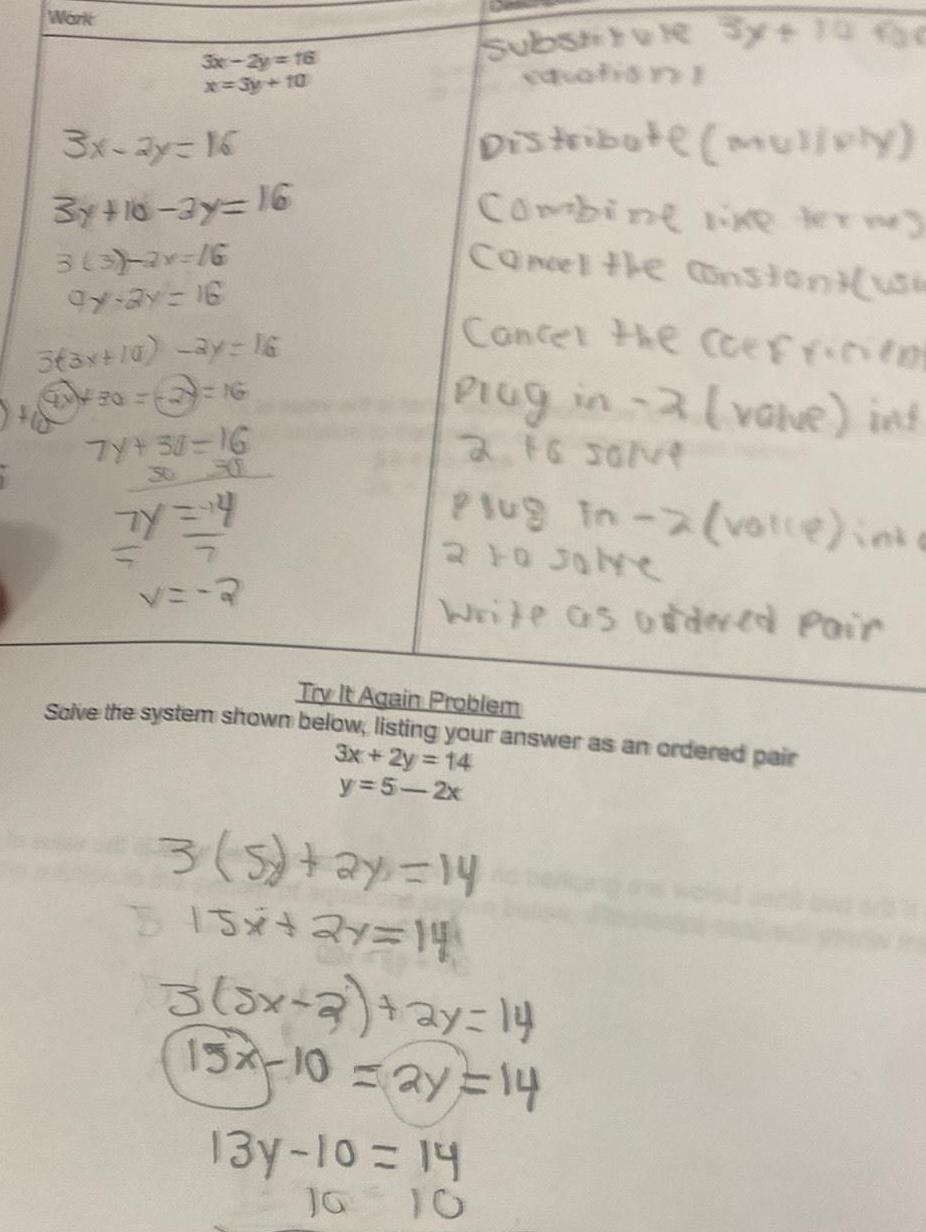 Work
3x – 2y = 16
x = 3y + 10
3x - 2y = 16
3y + 10 - 2y = 16
3(3)-2y=16
9y-2y = 16
3(3x+10) -2y=16
9y+30 = -2y=16
7y+30=16
30 30
7y = -14
7 7
y=-2
Substitute 3y + 10 for
equation 1
Distribute (multiply)
Combine like terms
Cancel the constant
Cancel the
Plug in -2 (value)
2 to solve
Plug in -2 (value) into
2 to solve
Write as ordered pair
Try It Again Problem
Solve the system shown below, listing your answer as an ordered pair
3x + 2y = 14
y = 5 — 2x
3 (5y) + 2y = 14
15x + 2y = 14
3(5x-2) + 2y = 14
15x-10 = 2y = 14
13y-10 = 14
10 10